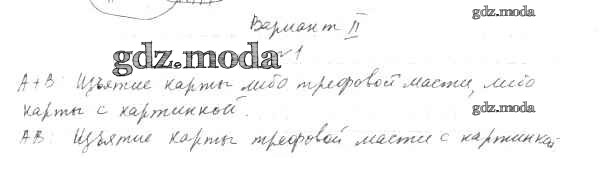 gdz.moda
Вариант II
gdz.moda
№1
A+B: Изъятие карты либо трефовой масти, либо
карты с картинкой.
gdz.moda
AB: Изъятие карты трефовой масти с картинкой